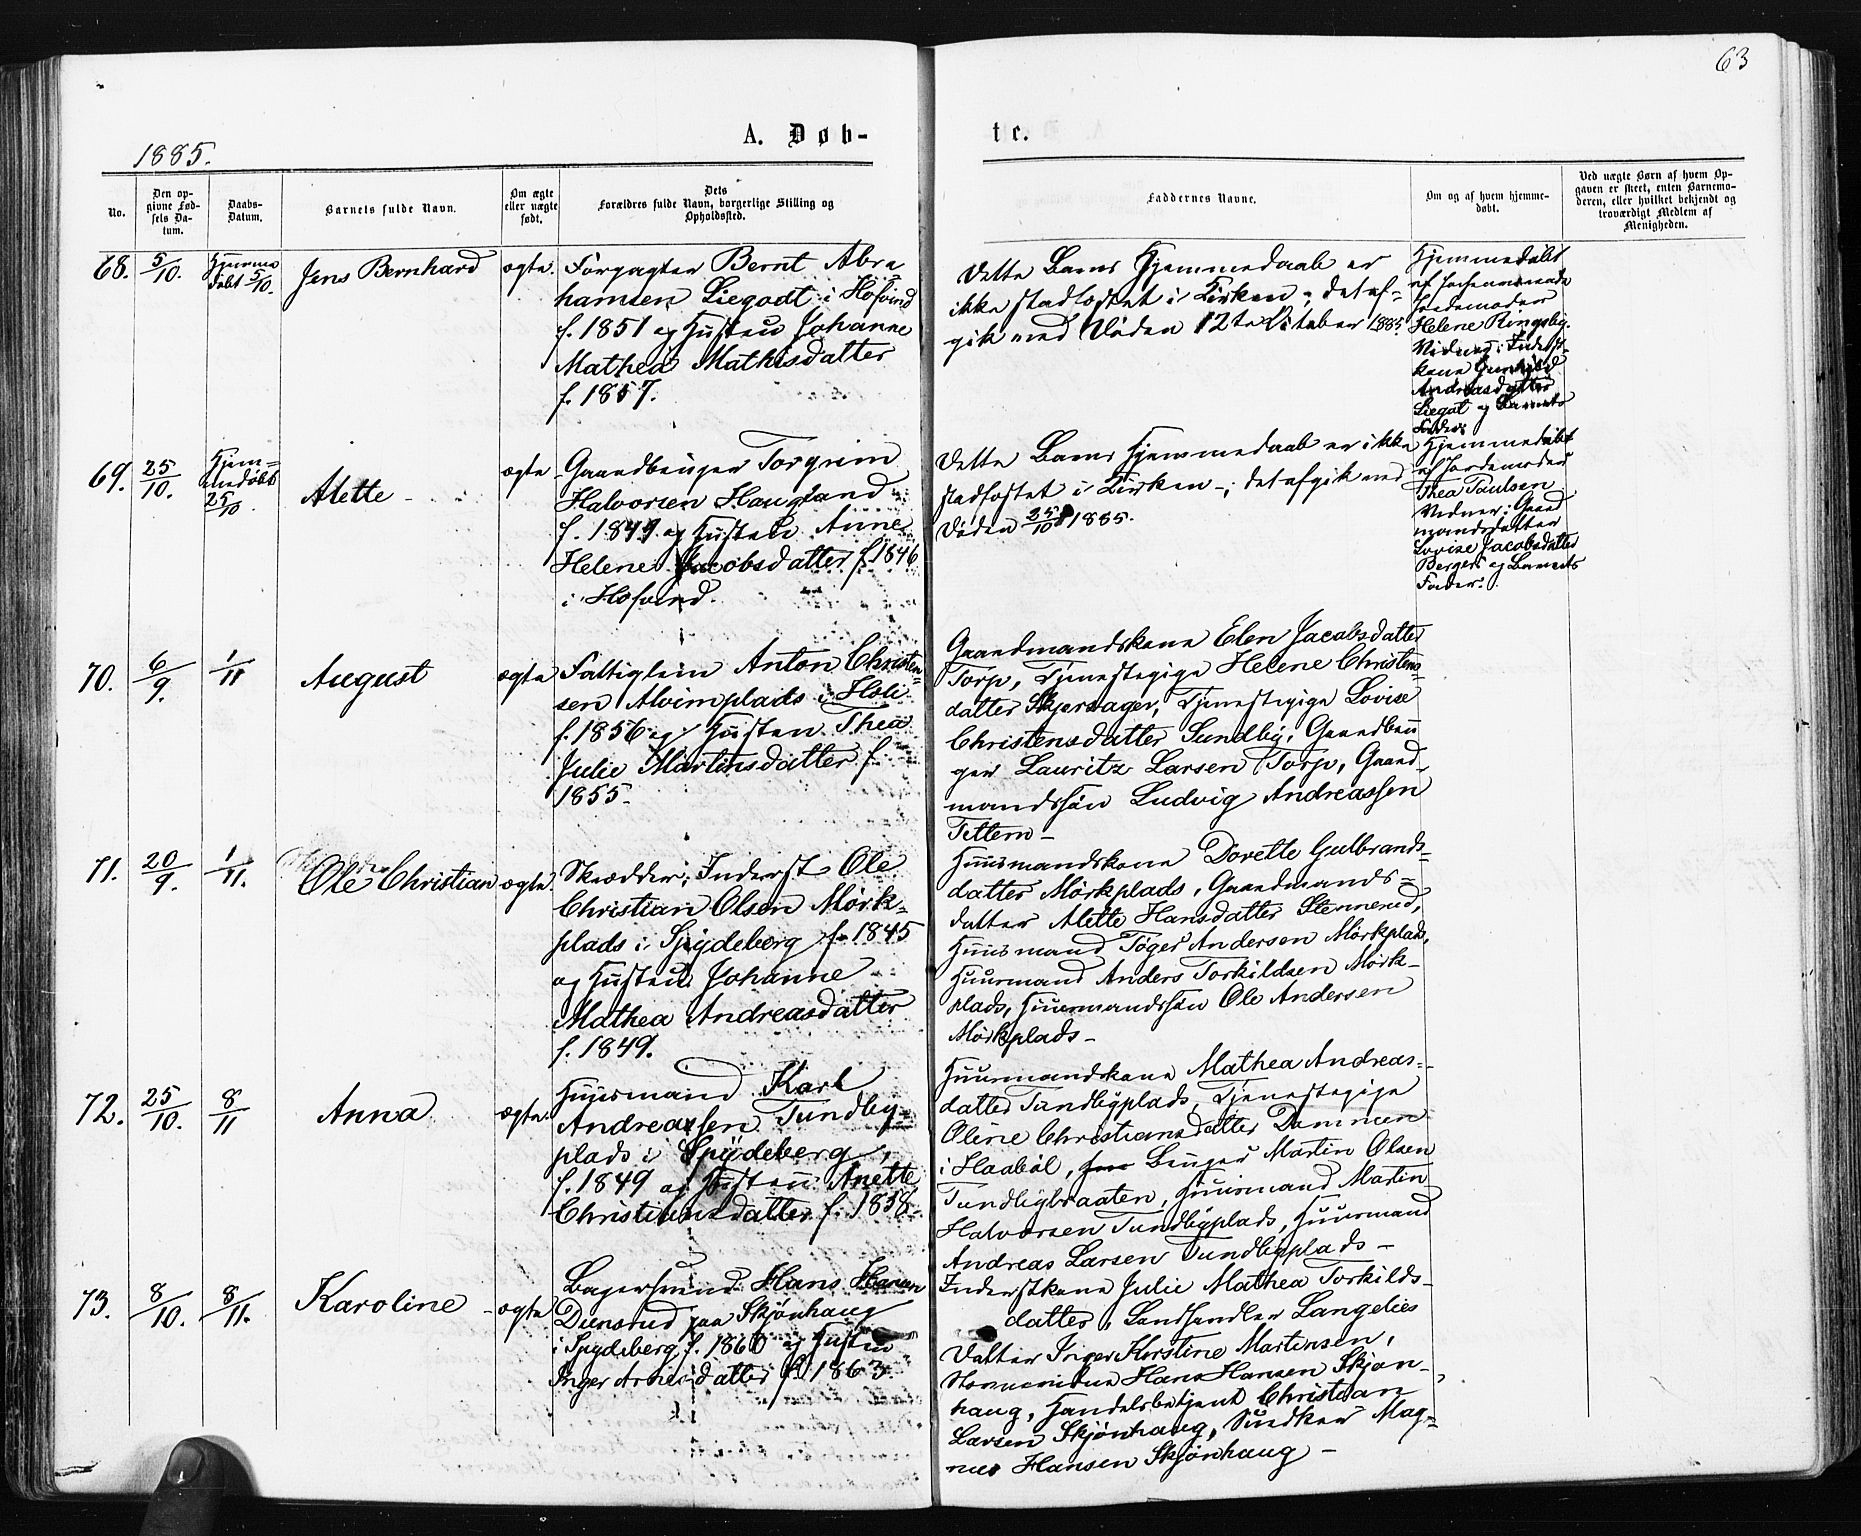 63
1885.
A. Døb-
te.
No.
Den op-
givne Fød-
sels Da-
tum.
Daabs-
Datum.
Barnets fulde Navn.
Om ægte
eller uægte
født.
Dets
Forældres fulde Navn, borgerlige Stilling og
Opholdssted.
Faddernes Navne.
Om og af hvem hjemme-
døbt.
Ved uægte Børn af hvem Op-
gaven er skeet, enten Barnemo-
deren, eller hvilket bekjendt og
troværdigt Medlem af
Menigheden.
68.
5/10.
Hjemme
døbt 5/10.
Jens Bernhard
ægte.
Forpagter Bernt Abra-
hamsen Liegodt i Hofvind
f. 1851 og Hustru Johanne
Mathea Mathisdatter
f. 1857.
Dette Barns Hjemmedaab er
ikke stadfæstet i Kirken -; det af-
gik ved Døden 12te October 1885
Hjemmedøbt
af
Jordemoder
Helene Ringsby.
Vidner: Inderst-
kone Gunhild
Andreasdatter
Liegot og Barnets
Fader.
69.
25/10.
Hjem-
medøbt
25/10.
Alette
ægte
Gaardbruger Torgrim
Halvorsen Haugland
f. 1847 og Hustru Anne
Helene Jacobsdatter f. 1846
i Hofvind.
Dette Barns Hjemmedaab er ikke
stadfæstet i Kirken -; det afgik ved
Døden 25/10 1885.
Hjemmedøbt
af Jordemoder
Thea Paulsen
Vidner: Gaard
mandsdatter
Lovise Jacobsdatter
Berger og Barnets
Fader.
70.
6/9.
1/11
August
ægte
Fattiglem Anton Christen-
sen Alvimplads i Holi
f. 1856 og Hustru Thea
Julie Martinsdatter f.
1855.
Gaardmandskone Elen Jacobsdatter
Torp, Tjenestepige Helene Christens-
datter Skjersager, Tjenestepige Lovise
Christensdatter Sundby, Gaardbru
ger Lauritz Larsen Torp, Gaard-
mandssøn Ludvig Andreassen
Tettem -
71.
20/9.
1/11.
Ole Christian
ægte.
Skrædder, Inderst Ole
Christian Olsen Mørk-
plads i Spydeberg f. 1845
og Hustru Johanne
Mathea Andreasdatter
f. 1849.
Huusmandskone Dorette Gulbrands-
datter Mørkplads, Gaardmands-
datter Alette Hansdatter Stenerud,
Huusmand Tøger Andersen Mørkplads,
Huusmand Anders Torkildsen Mørk-
plads, Huusmandssøn Ole Andersen
Mørkplads -
72.
25/10.
8/11
Anna
ægte.
Huusmand Karl
Andreassen Tundby-
plads i Spydeberg,
f. 1849 og Hustru Anette
Christiansdatter f. 1858.
Huusmandskone Mathea Andreas-
datter Tundbyplads, Tjenestepige
Oline Christiansdatter Dammen
i Haabøl, Bruger Martin Olsen
Tundbybraaten, Huusmand Martin
Halvorsen Tundbyplads, Huusmand
Andreas Larsen Tundbyplads -
73.
8/10.
8/11.
Karoline
ægte
Bagersvend Hans Hansen
Dunsrud paa Skjønhaug
i Spydeberg f. 1860 og Hustru
Inger Arnesdatter f. 1863.
Inderstkone Julie Mathea Torkilds-
datter, Landhandler Langelies
Datter Inger Kerstine Martinsen,
Hans Hansen Skjøn-
haug, Handelsbetjent Christian
Larsen Skjønhaug, Snedker Mag-
nus Hansen Skjønhaug -